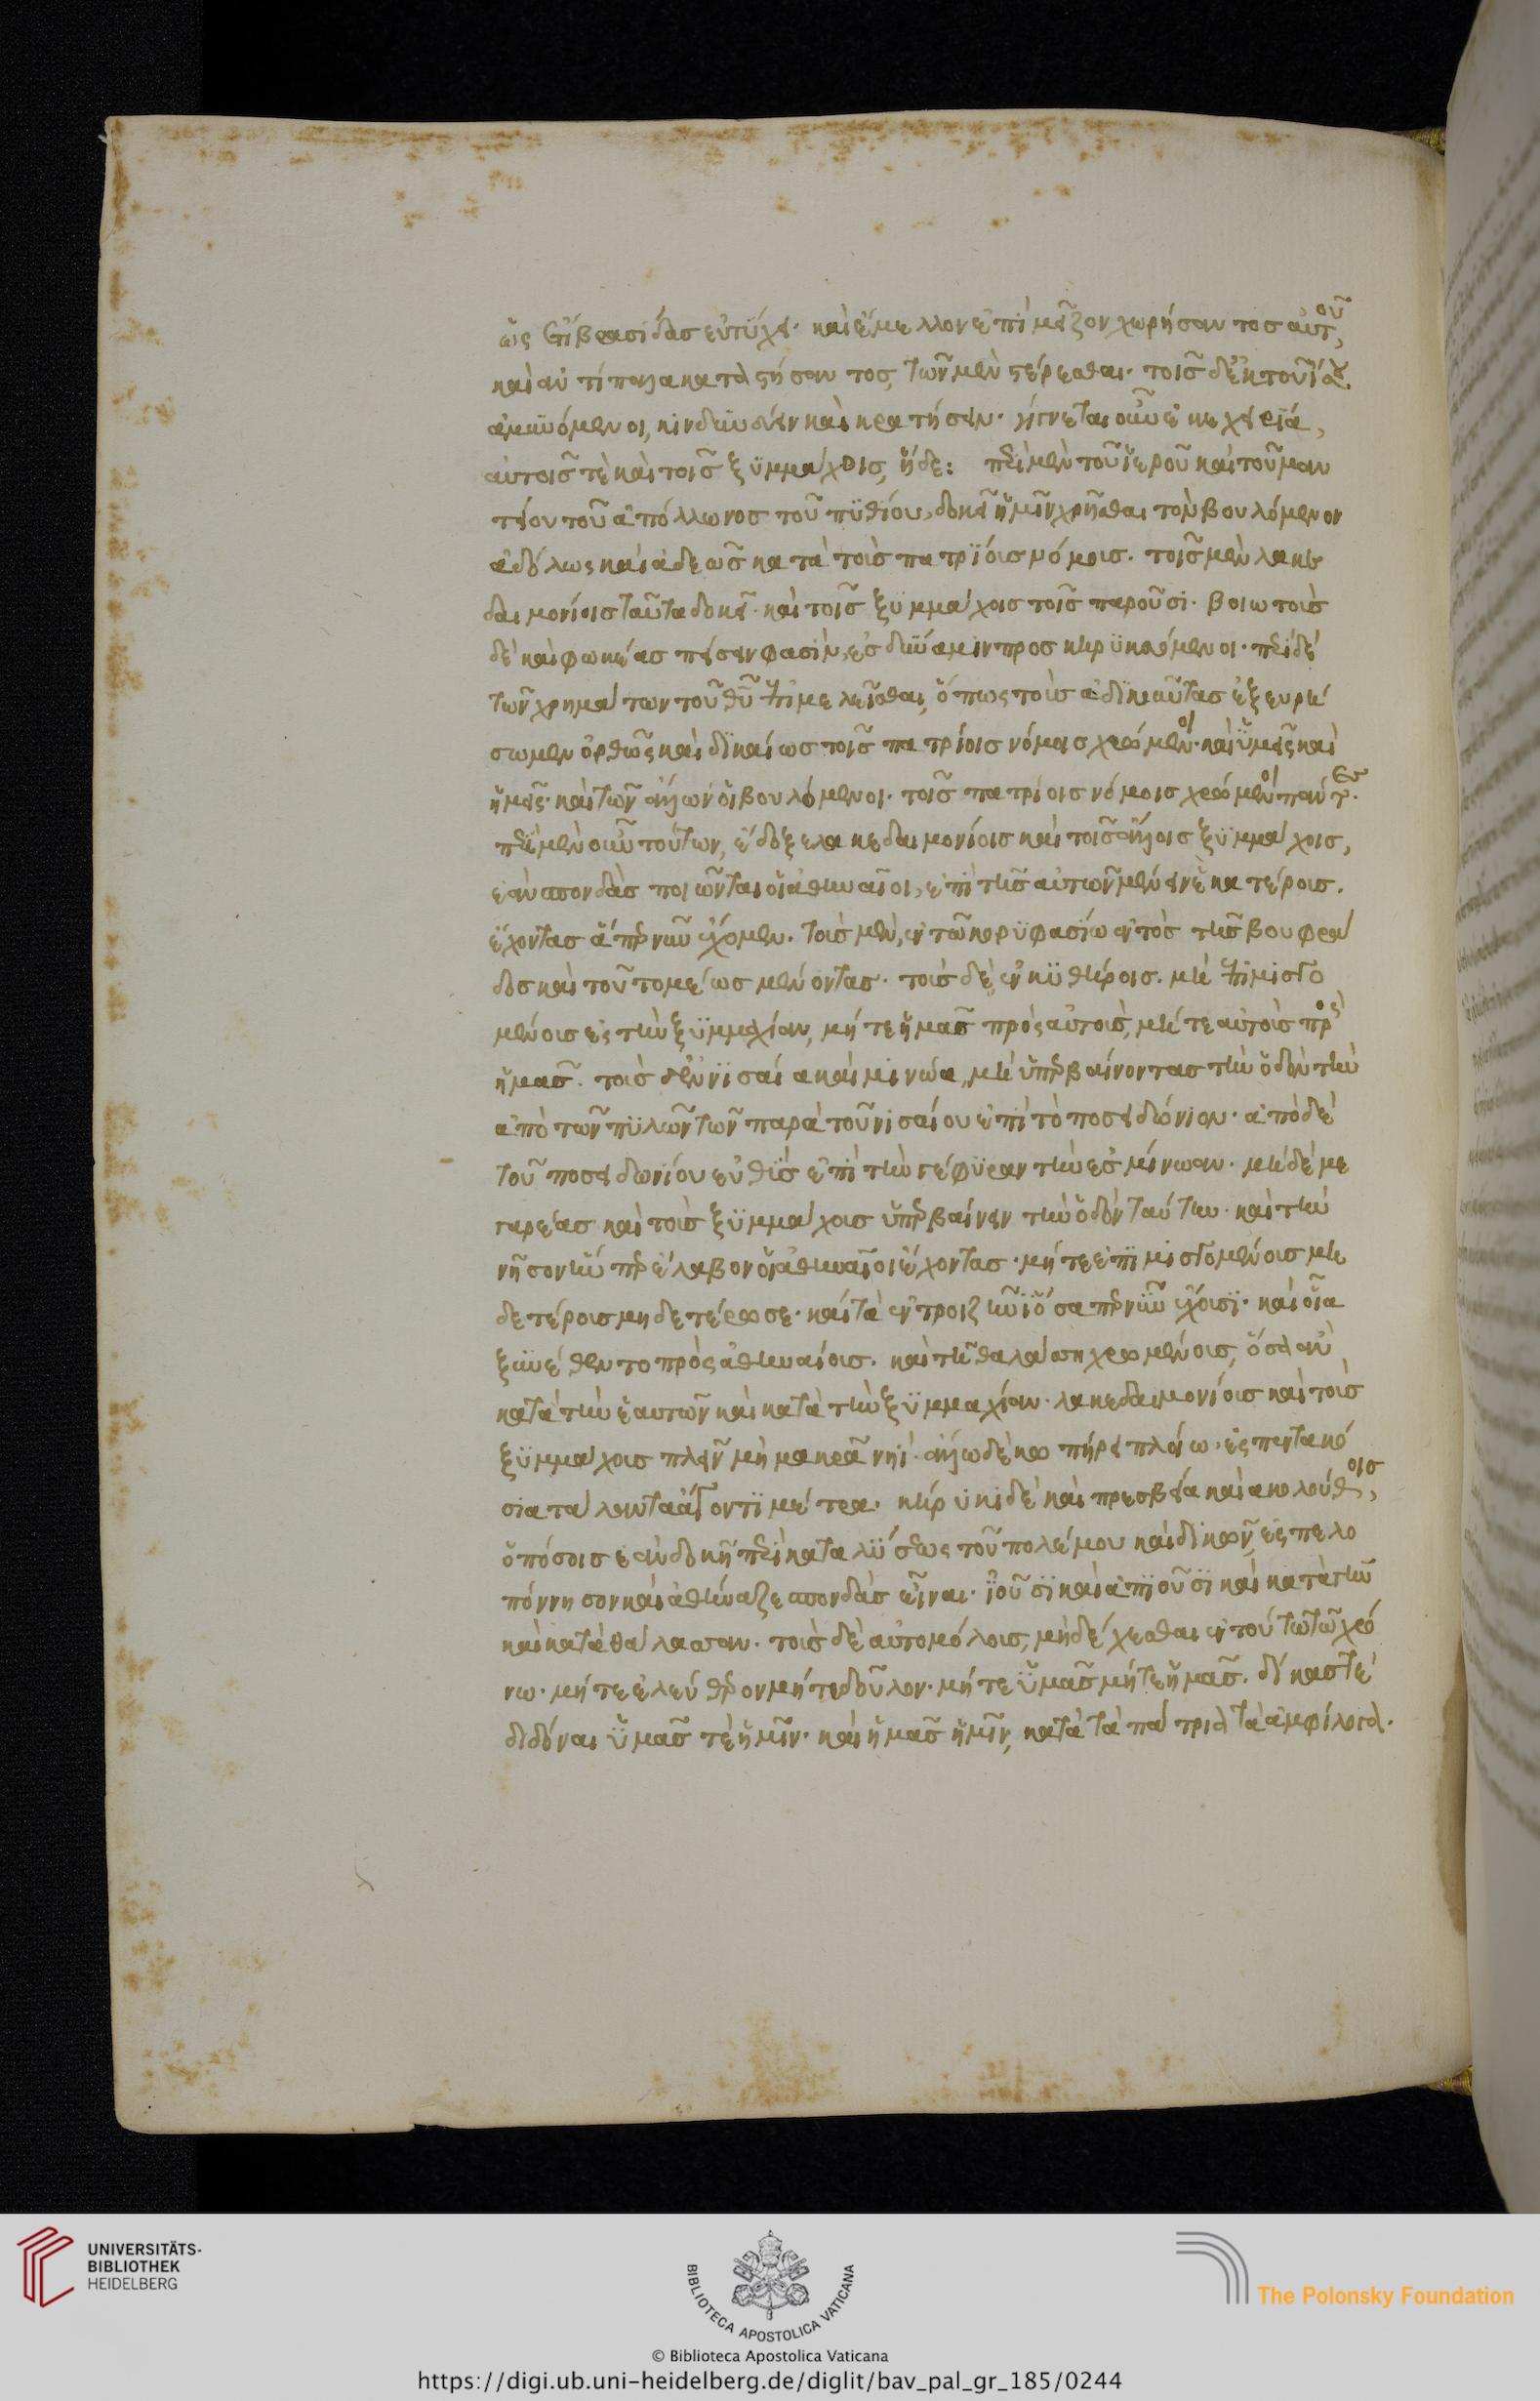 ὡς ἔτι βρασίδας εὐτύχει· καὶ ἔμελλον ἐπὶ μεῖζον χωρήσαντος αὐτοῦ,
καὶ ἀντίπαλα καταστήσαντος, τῶν μὲν στέρεσθαι· τοῖς δ' ἐκ τοῦ ἴσου
ἀμυνόμενοι, κινδυνεύειν καὶ κρατήσειν· γίγνεται οὖν ἐκεχειρία,
αὐτοῖς τὲ καὶ τοῖς ξυμμάχοις, ἥδε: περὶ μὲν τοῦ ἱεροῦ καὶ τοῦ μαν
τείου τοῦ ἀπόλλωνος τοῦ πυθίου, δοκεῖ ἡμῖν χρῆσθαι τὸν βουλόμενον
ἀδόλως καὶ ἀδεῶς κατὰ τοὺς πατρίους νόμους. τοῖς μὲν λακε
δαιμονίοις ταῦτα δοκεῖ· καὶ τοῖς ξυμμάχοις τοῖς παροῦσι· βοιωτοὺς
δὲ καὶ φωκέας πείσειν φασὶν, ἐς δύναμιν προσκηρυκευόμενοι· περὶ δὲ
τῶν χρημάτων τοῦ θεοῦ ἐπιμελεῖσθαι, ὅπως τοὺς ἀδικοῦντας ἐξευρή
σωμεν ὀρθῶς καὶ δικαίως τοῖς πατρίοις νόμοις χρώμενοι· καὶ ὑμεῖς καὶ
ἡμεῖς· καὶ τῶν ἄλλων οἱ βουλόμενοι· τοῖς πατρίοις νόμοις χρώμενοι πάντες.
περὶ μὲν οὖν τούτων, ἔδοξε λακεδαιμονίοις καὶ τοῖς ἄλλοις ξυμμάχοις,
ἐὰν σπονδὰς ποιῶνται οἱ ἀθηναῖοι, ἐπὶ τῆς αὐτῶν μένειν ἑκατέρους.
ἔχοντας ἅπερ νῦν ἔχομεν. τοὺς μὲν, ἐν τῶ κορυφασίω ἐντὸς τῆς βουφρά
δος καὶ τοῦ τομέως μένοντας. τοὺς δὲ, ἐν κυθήροις. μὴ ἐπιμισγο
μένους ἐς τὴν ξυμμαχίαν, μήτε ἡμᾶς πρὸς αὐτοὺς, μήτε αὐτοὺς πρὸς
ἡμᾶς. τοὺς δ' ἐν νισαία καὶ μινώα, μὴ ὑπερβαίνοντας τὴν ὁδὸν τὴν
ἀπὸ τῶν πυλῶν τῶν παρὰ τοῦ νισαίου ἐπὶ τὸ ποσειδώνιον· ἀπὸ δὲ
τοῦ ποσειδωνίου εὐθὺς ἐπὶ τὴν γέφυραν τὴν ἐς μίνωαν. μηδὲ με
γαρέας καὶ τοὺς ξυμμάχους ὑπερβαίνειν τὴν ὁδὸν ταύτην· καὶ τὴν
νῆσον ἥνπερ ἔλαβον οἱ ἀθηναῖοι ἔχοντας· μήτε ἐπιμισγομένους μη
δετέρους μηδετέρωσε· καὶ τὰ ἐν τροιζῆνι ὅσαπερ νῦν ἔχουσι· καὶ οἷα
ξυνέθεντο πρὸς ἀθηναίους. καὶ τῆ θαλάσση χρωμένους, ὅσα ἂν
κατὰ τὴν ἑαυτῶν καὶ κατὰ τὴν ξυμμαχίαν. λακεδαιμονίους καὶ τοὺς
ξυμμάχους πλεῖν μὴ μακρᾶ νηί· ἄλλω δὲ κωπήρει πλοίω, ἐς πεντακό
σια τάλαντα ἄγοντι μέτρα. κήρυκι δὲ καὶ πρεσβεία καὶ ἀκολούθοις,
ὁπόσοις ἐὰν δοκῆ περὶ καταλύσεως τοῦ πολέμου καὶ δικῶν, ἐς πελο
πόννησον καὶ ἀθήναζε σπονδὰς εἶναι. ἰοῦσι καὶ ἀπιοῦσι καὶ κατὰ γῆν
καὶ κατὰ θάλασσαν. τοὺς δὲ αὐτομόλους, μὴ δέχεσθαι ἐν τούτω τῶ χρό
νω. μήτε ἐλεύθερον μήτε δοῦλον. μήτε ὑμᾶς μήτε ἡμᾶς. δίκας τὲ
διδόναι ὑμᾶς τὲ ἡμῖν· καὶ ἡμᾶς ἡμῖν, κατὰ τὰ πάτρια τὰ ἀμφίλογα.
UNIVERSITÄTS-
BIBLIOTHEK
HEIDELBERG
BIBLIOTECA APOSTOLICA VATICANA
The Polonsky Foundation
© Biblioteca Apostolica Vaticana
https://digi.ub.uni-heidelberg.de/diglit/bav_pal_gr_185/0244